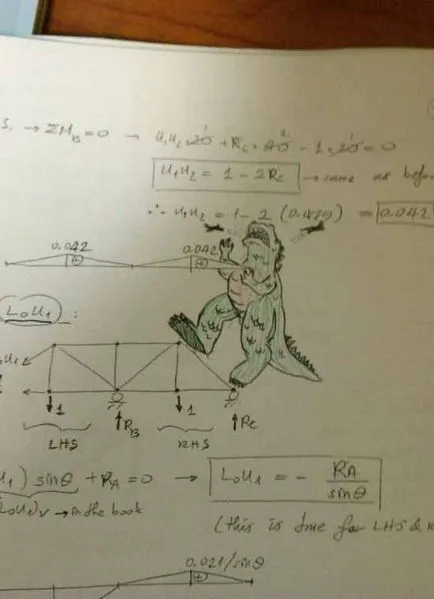 S. → ΣM_B = 0 → U₁U₂ · 20 + R_C · 40 − 1 · 20 = 0
1 2 1
U₁U₂ = 1 − 2R_C → same as befor
∴ U₁U₂ = 1 − 2 (0.479) = 0.042
0.042 0.042
⊕ ⊕
L₀U₁ :
₀U₁
1 R_B 1 R_C
LHS RHS
U₁) sinθ + R_A = 0 → L₀U₁ = − R_A / sinθ
(L₀U₁)ᵥ → in the book
(this is true for LHS &
0.021/sinθ
⊕